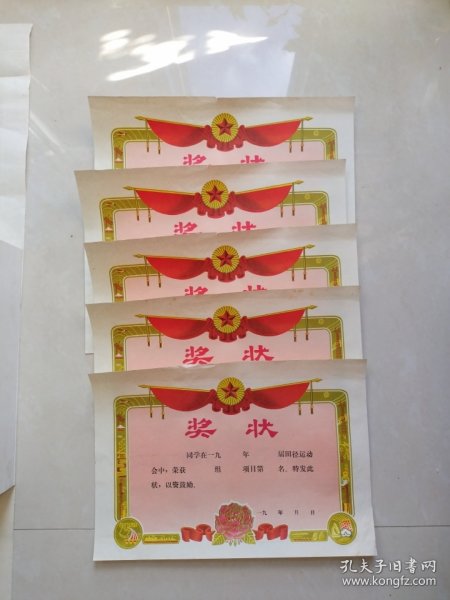 奖 状
奖 状
奖 状
奖 状
奖 状
同学在一九 年 届田径运动
会中：荣获 组 项目第 名。特发此
状：以资鼓励。
一九 年 月 日
孔夫子旧书网
www.kongfz.com